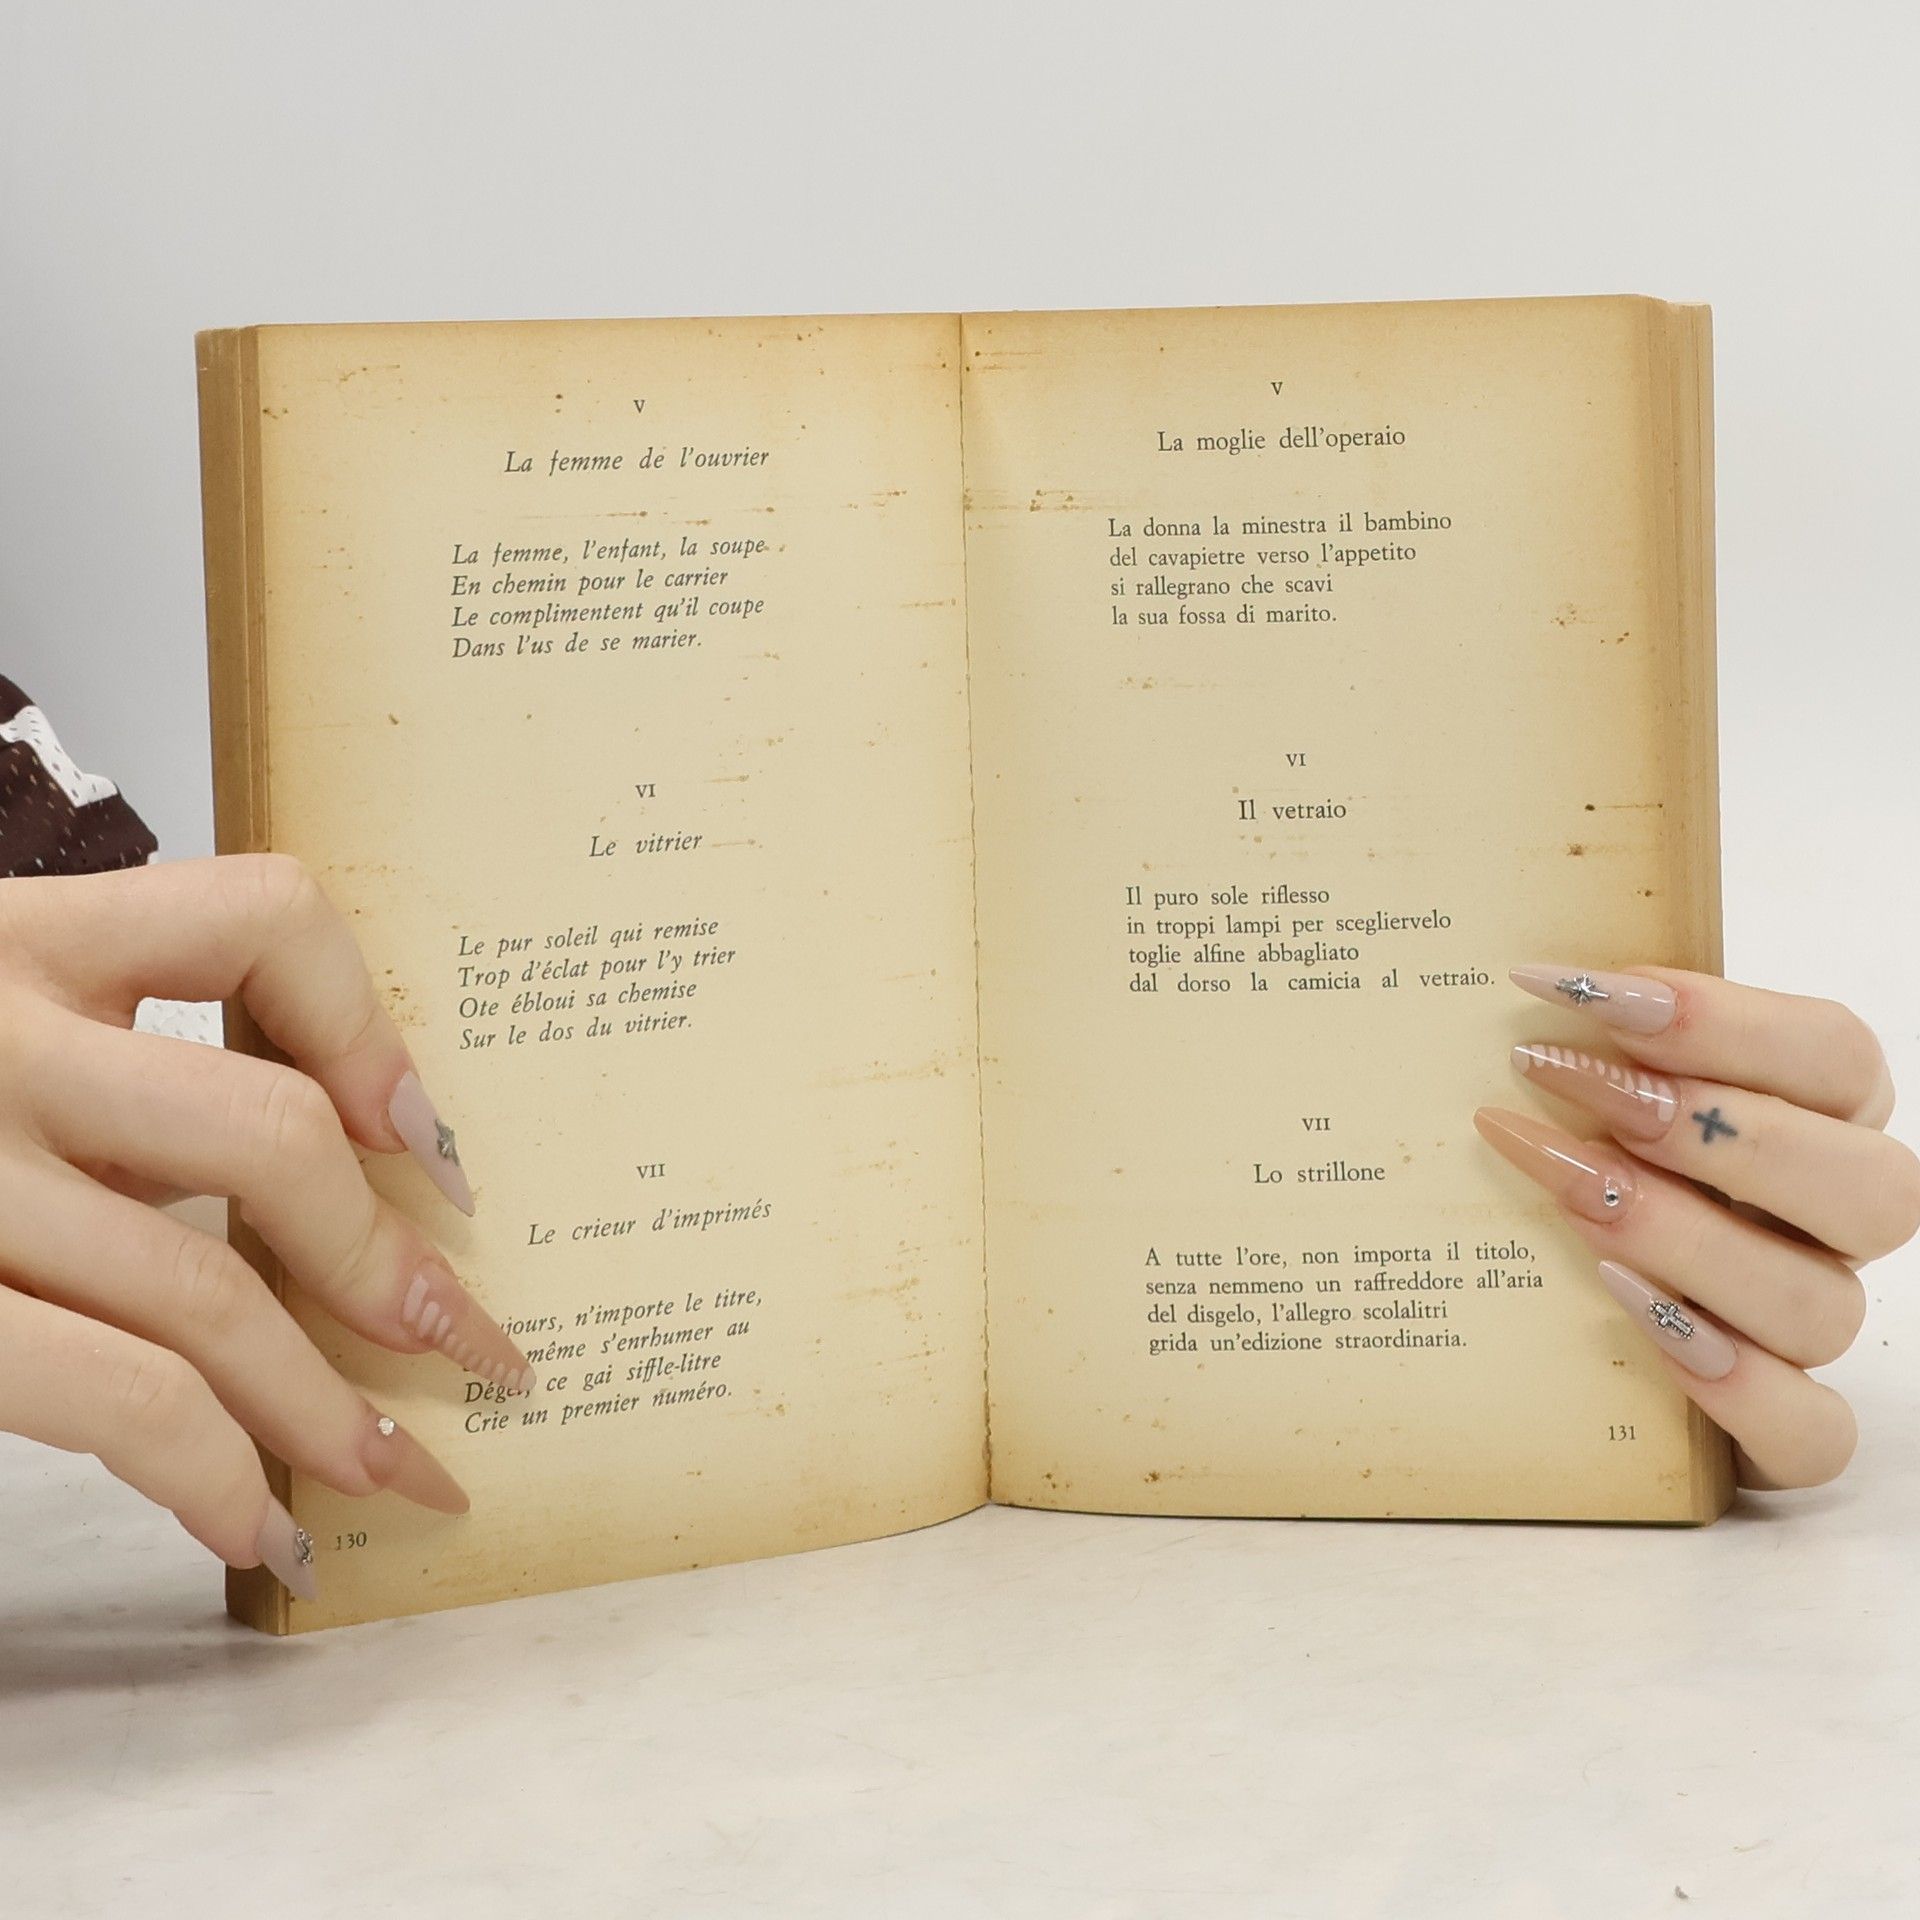 V
La femme de l'ouvrier
La femme, l'enfant, la soupe
En chemin pour le carrier
Le complimentent qu'il coupe
Dans l'us de se marier.
VI
Le vitrier
Le pur soleil qui remise
Trop d'éclat pour l'y trier
Ote ébloui sa chemise
Sur le dos du vitrier.
VII
Le crieur d'imprimés
n'importe le titre,
même s'enrhumer au
ce gai siffle-litre
Crie un premier numéro.
130
V
La moglie dell'operaio
La donna la minestra il bambino
del cavapietre verso l'appetito
si rallegrano che scavi
la sua fossa di marito.
VI
Il vetraio
Il puro sole riflesso
in troppi lampi per scegliervelo
toglie alfine abbagliato
dal dorso la camicia al vetraio.
VII
Lo strillone
A tutte l'ore, non importa il titolo,
senza nemmeno un raffreddore all'aria
del disgelo, l'allegro scolalitri
grida un'edizione straordinaria.
131